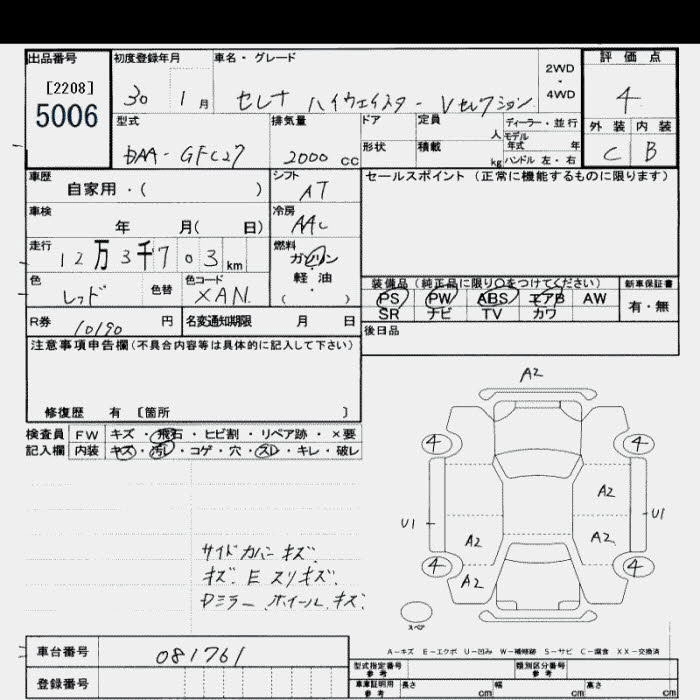 出品番号 初度登録年月 車名・グレード 2WD・4WD 評価点
[2208]
5006
30 1月 セレナ ハイウェイスター Vセレクション 4
型式 排気量 ドア 定員 人 ディーラー・並行 外装 内装
DAA-GFC27 2000cc 形状 積載 kg モデル年式 年 ハンドル 左・右 C B
車歴 シフト セールスポイント (正常に機能するものに限ります)
自家用・( ) AT
車検 冷房
年 月( 日) AAC
走行 燃料
12万3千703km ガソリン・軽油
色 色替 色コード ( )
レッド XAN 装備品 (純正品に限り○をつけてください) 新車保証書
PS PW ABS エアB AW 有・無
R券 10190円 名変通知期限 月 日 SR ナビ TV カワ
注意事項申告欄(不具合内容等は具体的に記入して下さい) 後日品
修復歴 有 〔箇所 〕
検査員 FW キズ・飛石・ヒビ割・リペア跡・×要
記入欄 内装 キズ・汚レ・コゲ・穴・スレ・キレ・破レ
A2
4 4
A2
U1 U1
A2 A2
4 4
A2
サイドカバーキズ
キズ E スリキズ
Dミラー、ホイールキズ
スペア
A-キズ E-エクボ U-凹み W-補修跡 S-サビ C-腐食 XX-交換済
車台番号 081761 型式指定番号 参考 類別区分番号 参考
登録番号 車庫証明用 参考 長さ cm 幅 cm 高さ cm